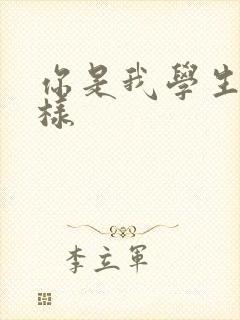 你是我學生
樣
李立軍